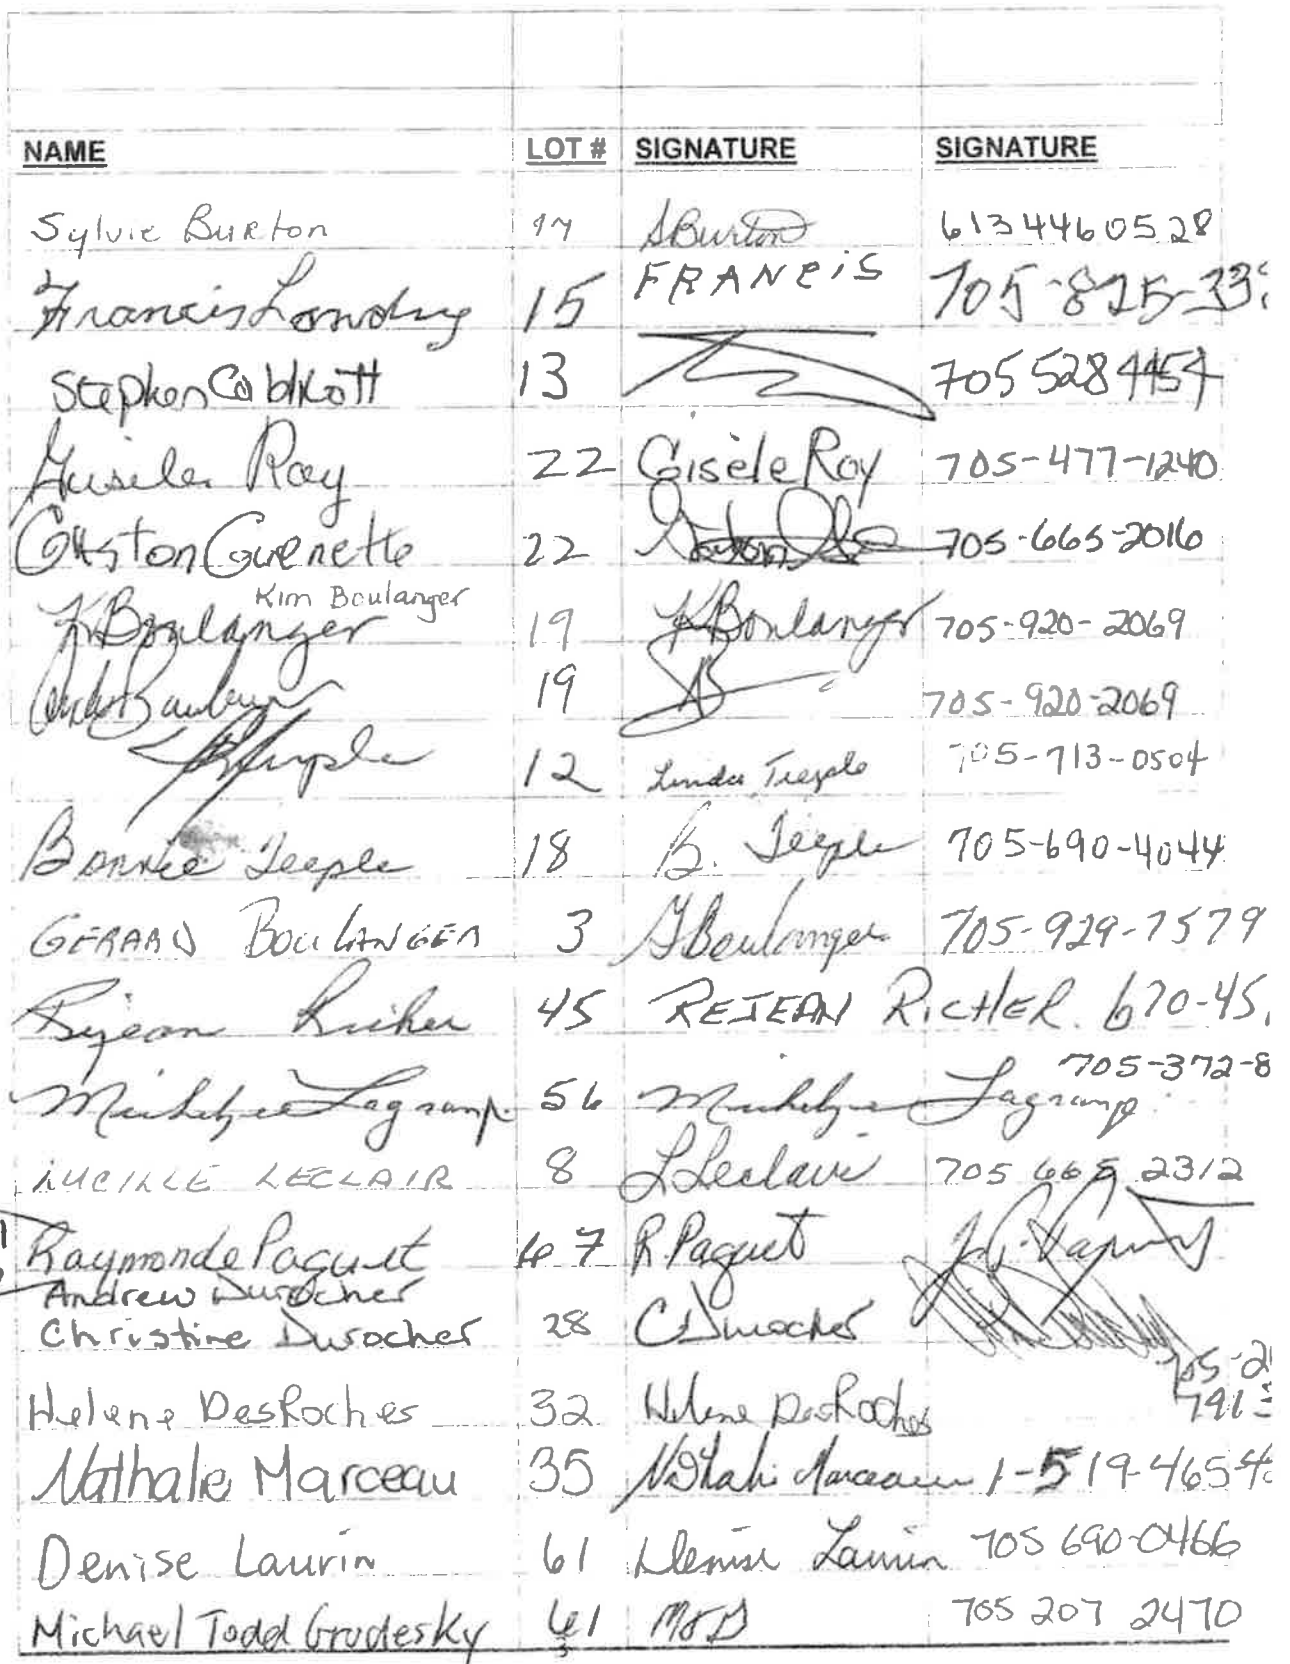 NAME LOT # SIGNATURE SIGNATURE
Sylvie Burton 17 SBurton 6134460528
Francis Landry 15 FRANCIS 705-825-33
Stephen Caldicott 13 705 528 4454
Gisele Roy 22 Gisèle Roy 705-477-1240
Gaston Guenette 22 Gaston 705-665-2016
Kim Boulanger
KBoulanger 19 KBoulanger 705-920-2069
19 705-920-2069
12 Linda Teeple 705-713-0504
Bonnie Teeple 18 B. Teeple 705-690-4044
GERARD BOULANGER 3 GBoulanger 705-929-7579
Rejean Richer 45 REJEAN RICHER. 670-45
705-372-8
Michelyne Lagramp 56 Michelyne Lagramp
LUCILLE LECLAIR 8 LLeclair 705 665 2312
Raymonde Paquet 67 R Paquet
Andrew Durocher
Christine Durocher 28 CDurocher
05-2
791
Helene DesRoches 32 Helene DesRoches
Nathalie Marceau 35 Nathalie Marceau 1-519-465-4
Denise Laurin 61 Denise Laurin 705 690-0466
Michael Todd Grudesky 61 MTG 705 207 2470